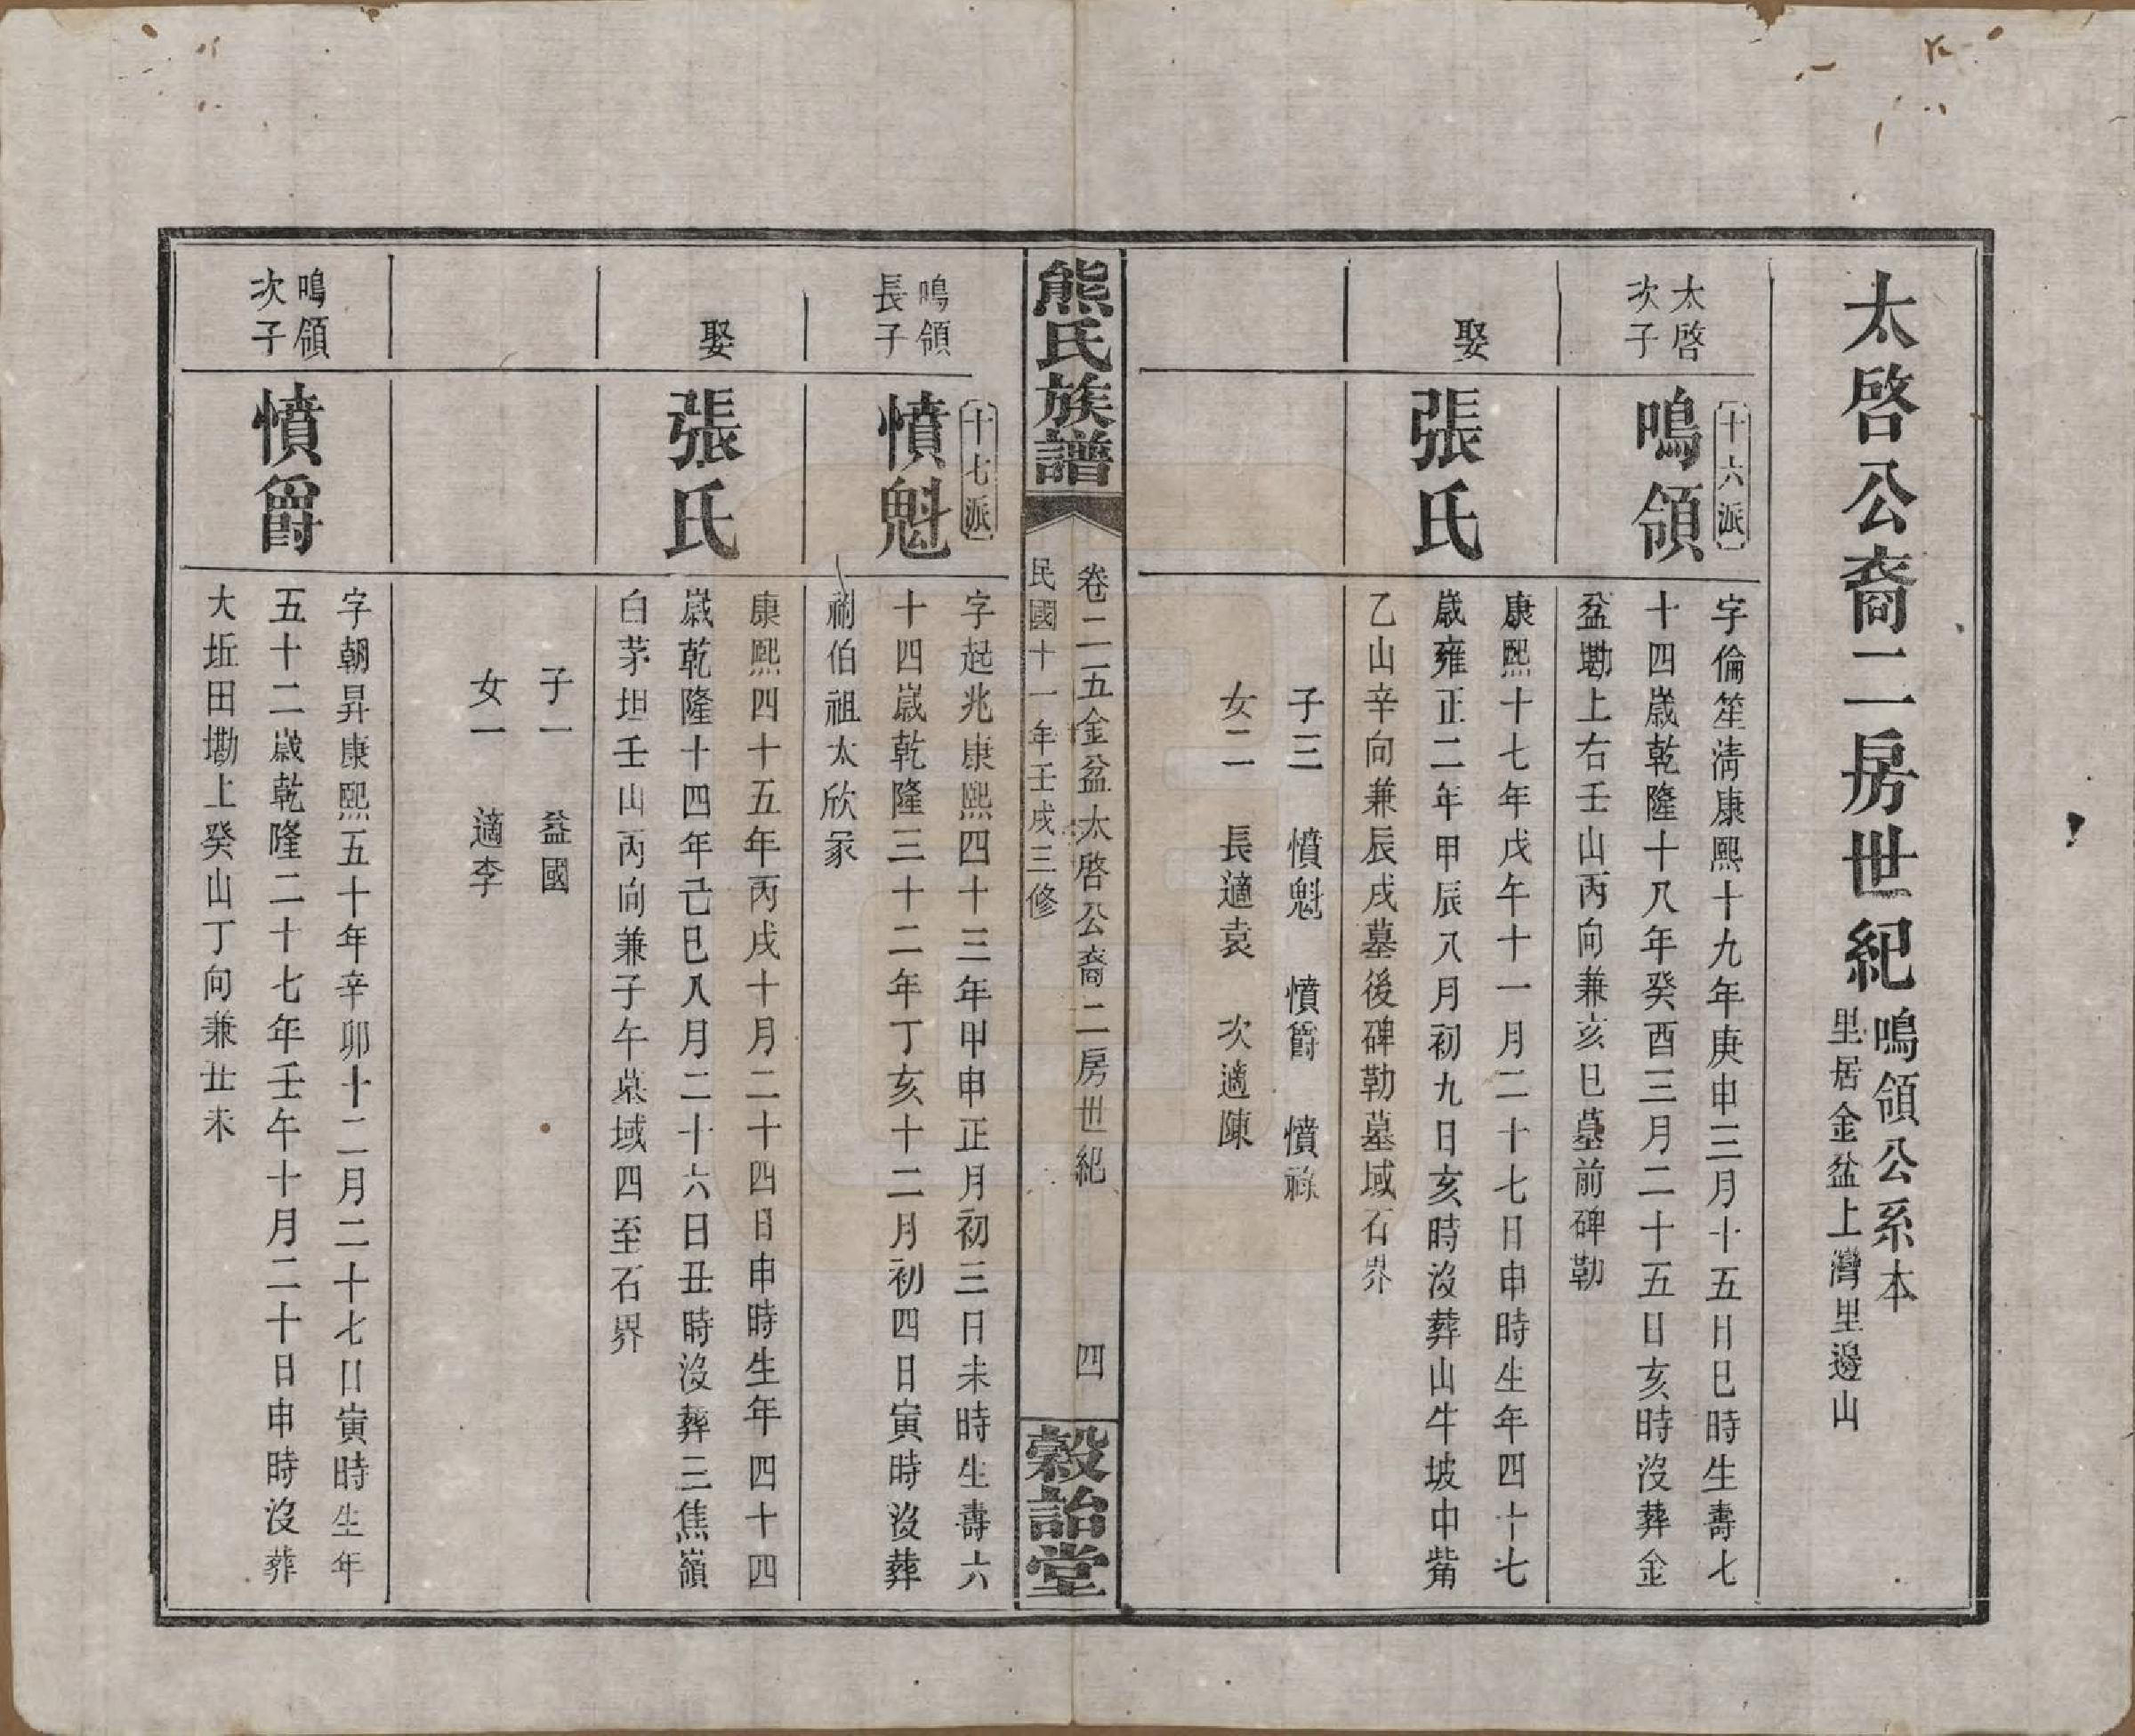 太啓公裔二房世紀
鳴領公系本
里居金盆上灣里邊山
太啓
次子
十六派
鳴領
字倫筀清康熙十九年庚申三月十五日巳時生壽七
十四歲乾隆十八年癸酉三月二十五日亥時沒葬金
盆墈上右壬山丙向兼亥巳墓前碑勒
娶
張氏
康熙十七年戊午十一月二十七日申時生年四十七
歲雍正二年甲辰八月初九日亥時沒葬山牛坡中嘴
乙山辛向兼辰戌墓後碑勒墓域石界
子三 憤魁 憤爵 憤祿
女二 長適袁 次適陳
熊氏族譜
卷二五金盆太啓公裔二房世紀 四
民國十一年壬戌三修
穀詒堂
鳴領
長子
十七派
憤魁
字起兆康熙四十三年甲申正月初三日未時生壽六
十四歲乾隆三十二年丁亥十二月初四日寅時沒葬
祔伯祖太欣冢
娶
張氏
康熙四十五年丙戌十月二十四日申時生年四十四
歲乾隆十四年己巳八月二十六日丑時沒葬三焦嶺
白茅坦壬山丙向兼子午墓域四至石界
子一 益國
女一 適李
鳴領
次子
憤爵
字朝昇康熙五十年辛卯十二月二十七日寅時生年
五十二歲乾隆二十七年壬午十月二十日申時沒葬
大坵田墈上癸山丁向兼丑未